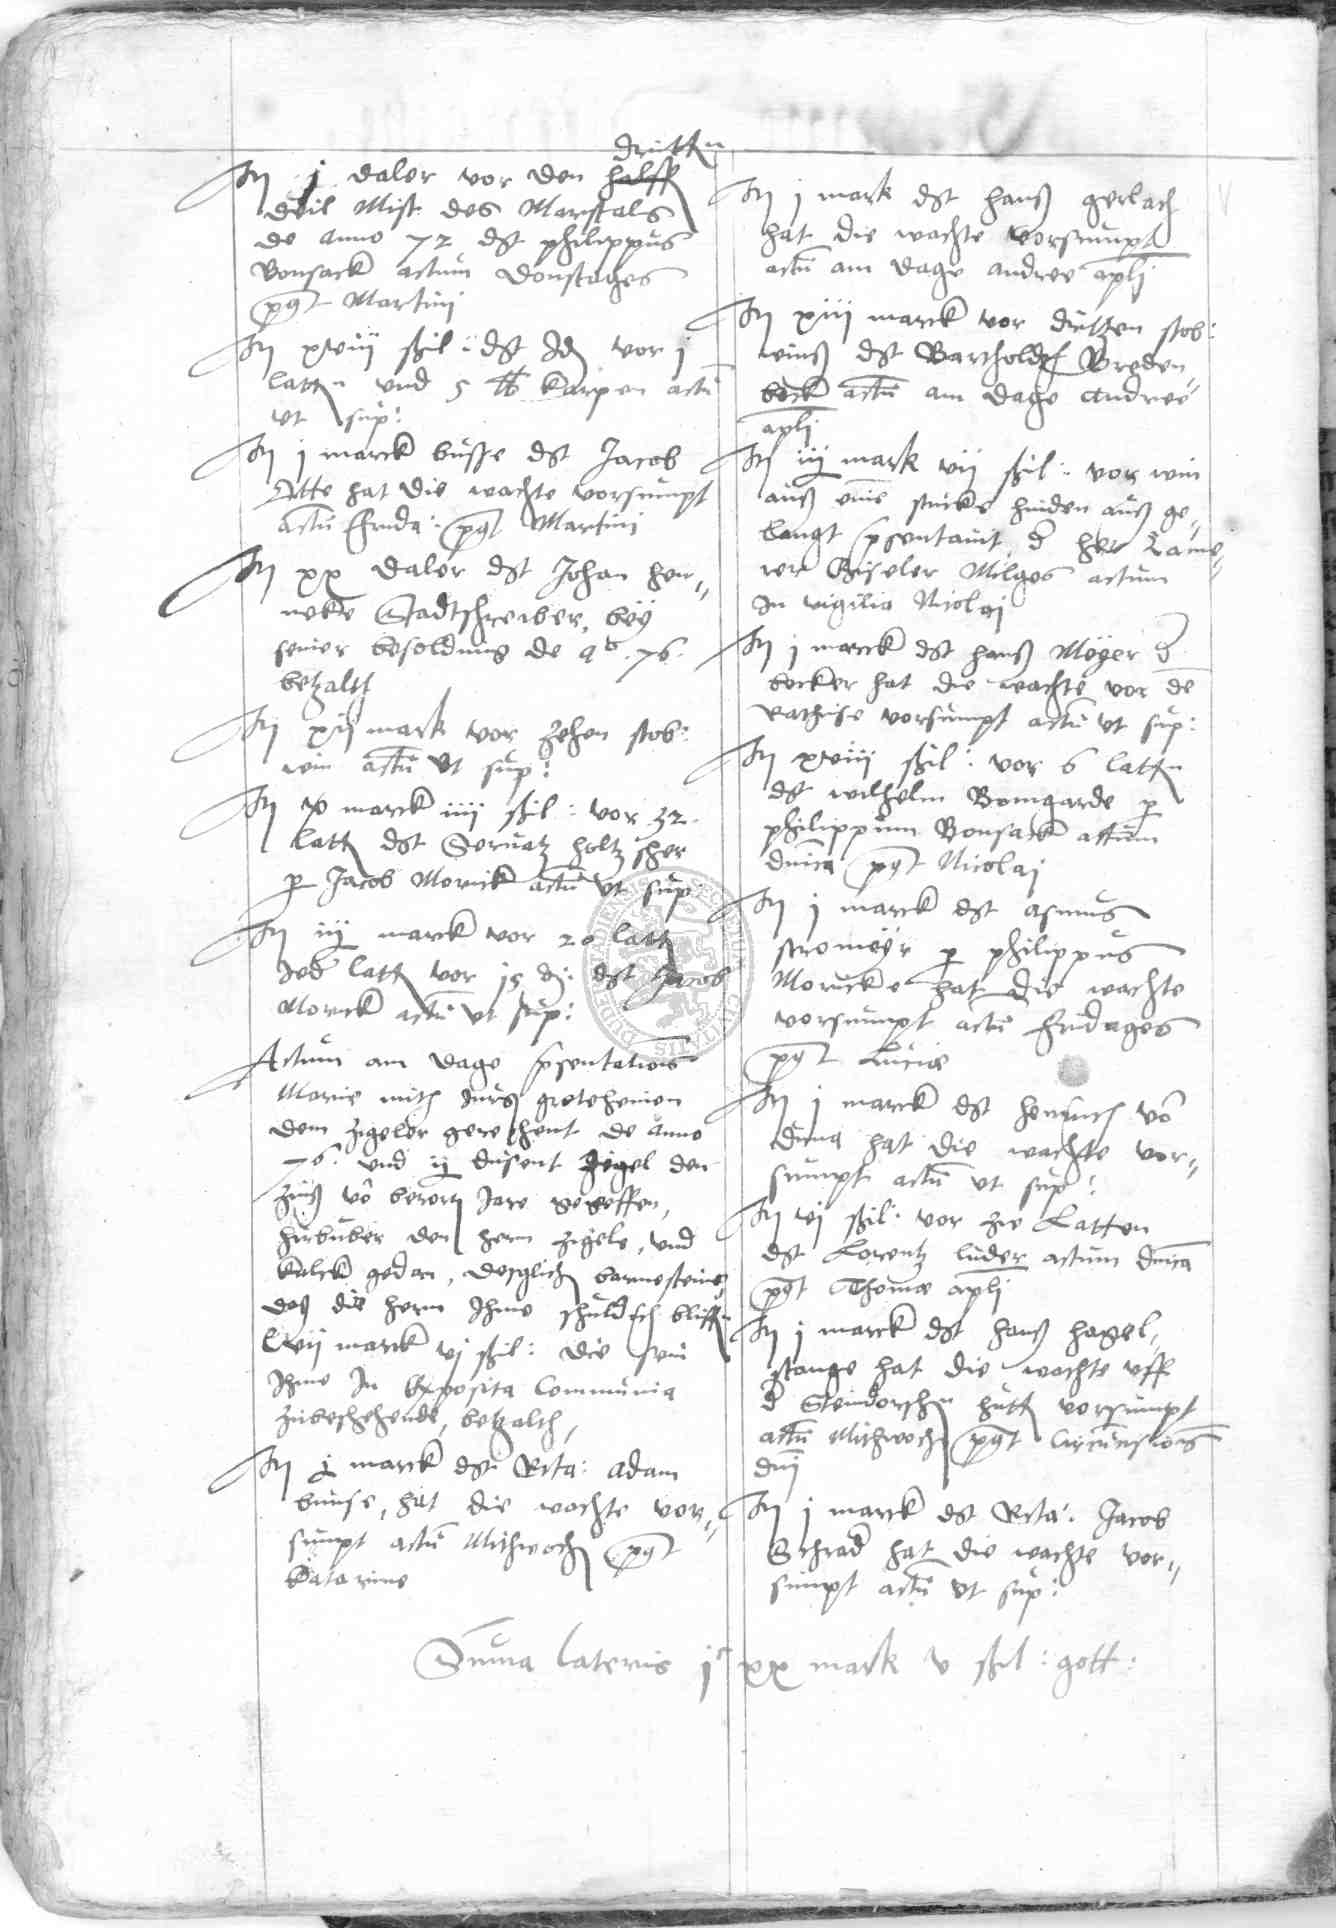 dritten
It j daler vor den halff
deil Mist des Marstals
de anno 72 dst philippus
Bonsack actum donstages
pt Martini
It xviij ßil: dst Id vor j
latten und 5 lb karpen actu
ut sup:
It j marck busse dst Jacob
Otte hat die wachte vorsumpt
actu frida: pt Martini
It xx daler dst Johan Hen=
neke Stadtschreiber, bey
seiner besoldung de ao 76.
betzalt
It xij mark vor zehen stob:
win actu ut sup:
It x marck iiij ßil: vor 32
latt dst Servatz holtzscher
p Jacob Morick actu ut sup
It iij marck vor 20 latt
Jed latt vor 15 d: dst Jacob
Morick actu ut sup:
Actum am dage psentationis
Marie mith Jurg grotehenen
dem Zigeler gerechent de anno
76. und ij dusent Zigel den
Zinß vo berort Jare
hirbuber den hern Zigele, und
kalck gedan, desglich barnesteine
das die hern Ihme schuldich bliff
lvij marck vj ßil: die sein
Ihme In Exposita Communia
zubeschehende, betzalth,
It j marck dst Rita: Adam
bunse, hat die wachte vor=
sumpt actu Mithwoch pt
Katarine
It j mark dst hanß gerlach
hat die wachte vorsumpt
actu am dage andree apli
It xiij marck vor stob:
winß dst Bartholdt Breden
beck actu am dage Andree
apli
It iij mark vij ßil: vor win
auß eine stucke hinden auß ge=
langt psentavit d her Came=
rer Giseler Milges actum
In vigilia Nicolaj
It j marck dst hanß Meyer d
becker hat die wachte vor de
Rathuse vorsumpt actu ut sup:
It xviij ßil: vor 6 latten
dst wilhelm Bomgarde p
philippum Bonsack actum
dnica pt Nicolaj
It j marck dst asmus
stromeyr p philippus
Moricke hat die wachte
vorsumpt actu fridages
pt Lucie
It j marck dst Henrich vo
duna hat die wachte vor=
sumpt actu ut sup:
It vj ßil: vor zve Latten
dst Lorentz luder actum dnica
pt Thome apli
It j marck dst hanß hagel=
stange hat die wachte uff
d Steindorschn hutt vorsumpt
actu Mithwoch pt Circucisionis
dni
It j marck dst Rita: Jacob
Schrad hat die wachte vor=
sumpt actu ut sup:
Suma lateris jc xx mark v ßil: gott:
DUDERSTADIENSIS CIVITATIS